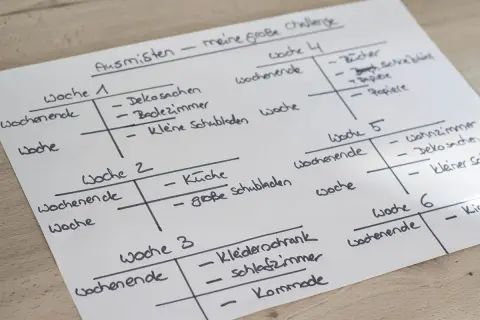 Ausmisten — meine große Challenge
Woche 1
Wochenende – Dekosachen
– Badezimmer
Woche – kleine Schubladen
Woche 2
Wochenende – Küche
Woche – große Schubladen
Woche 3
Wochenende – Kleiderschrank
– Schlafzimmer
– Kommode
Woche 4
Wochenende – Bücher
– Schreibtisch
– Papiere
Woche – Papiere
Woche 5
Wochenende – Wohnzimmer
– Dekosachen
Woche – kleiner
Woche 6
Wochenende